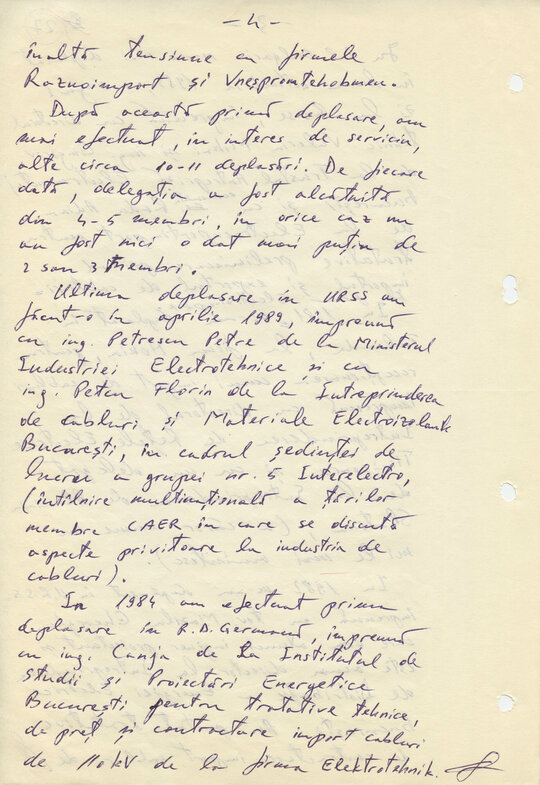 - 4 -
înaltă tensiune cu firmele
Raznoimport și Vneșpromtehobmen.
După această primă deplasare, am
mai efectuat, în interes de serviciu,
alte circa 10-11 deplasări. De fiecare
dată, delegația a fost alcătuită
din 4-5 membri, în orice caz nu
au fost nici o dată mai puțin de
2 sau 3 membri.
Ultima deplasare în URSS am
făcut-o în aprilie 1989, împreună
cu ing. Petrescu Petre de la Ministerul
Industriei Electrotehnice și cu
ing. Petcu Florin de la Intreprinderea
de cabluri și Materiale Electroizolante
București, în cadrul ședinței de
lucru a grupei nr. 5 Interelectro,
(întîlnire multinațională a țărilor
membre CAER în care se discută
aspecte privitoare la industria de
cabluri).
In 1984 am efectuat prima
deplasare în R.D. Germană, împreună
cu ing. Canja de la Institutul de
studii și Proiectări Energetice
București pentru tratative tehnice,
de preț și contractare import cabluri
de 110 kV de la firma Elektrotehnik.